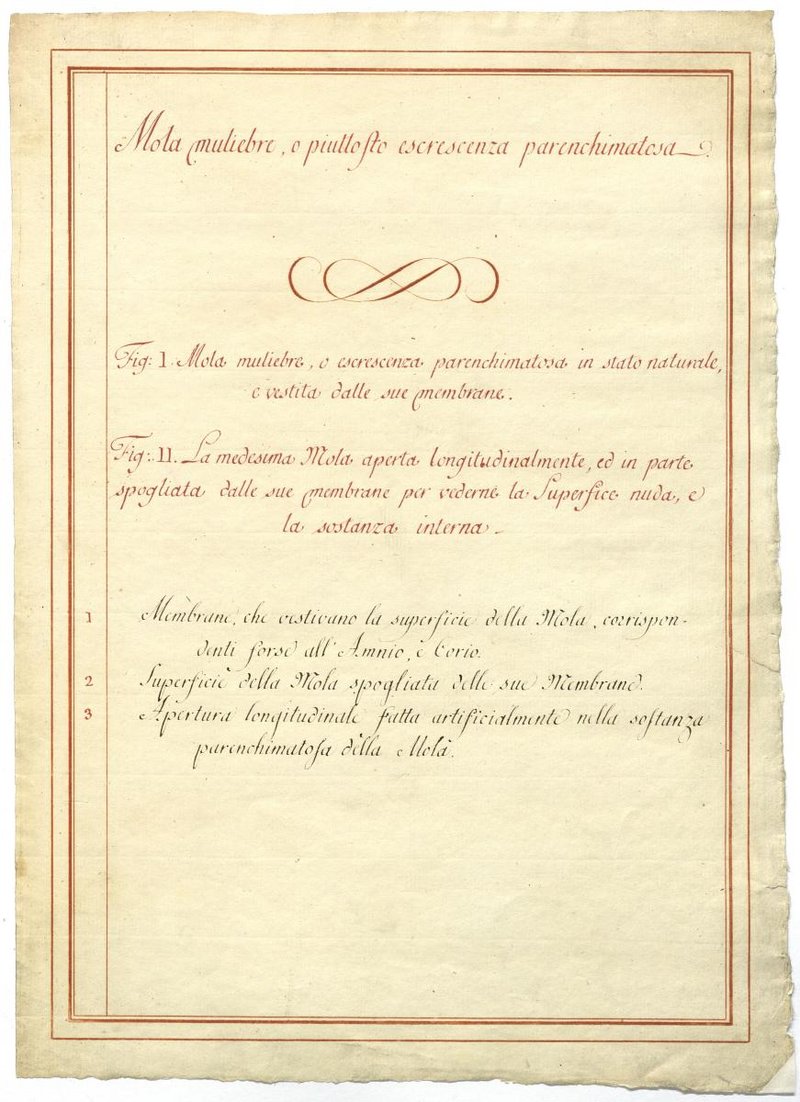 Mola muliebre, o piuttosto escrescenza parenchimatosa
Fig: I. Mola muliebre, o escrescenza parenchimatosa in stato naturale,
e vestita dalle sue membrane.
Fig: II. La medesima Mola aperta longitudinalmente, ed in parte
spogliata dalle sue membrane per vederne la Superfice nuda, e
la sostanza interna
1 Membrane, che vestivano la superficie della Mola, corrispon-
denti forse all'Amnio, e Corio.
2 Superficie della Mola spogliata delle sue Membrane.
3 Apertura longitudinale fatta artificialmente nella sostanza
parenchimatosa della Mola.